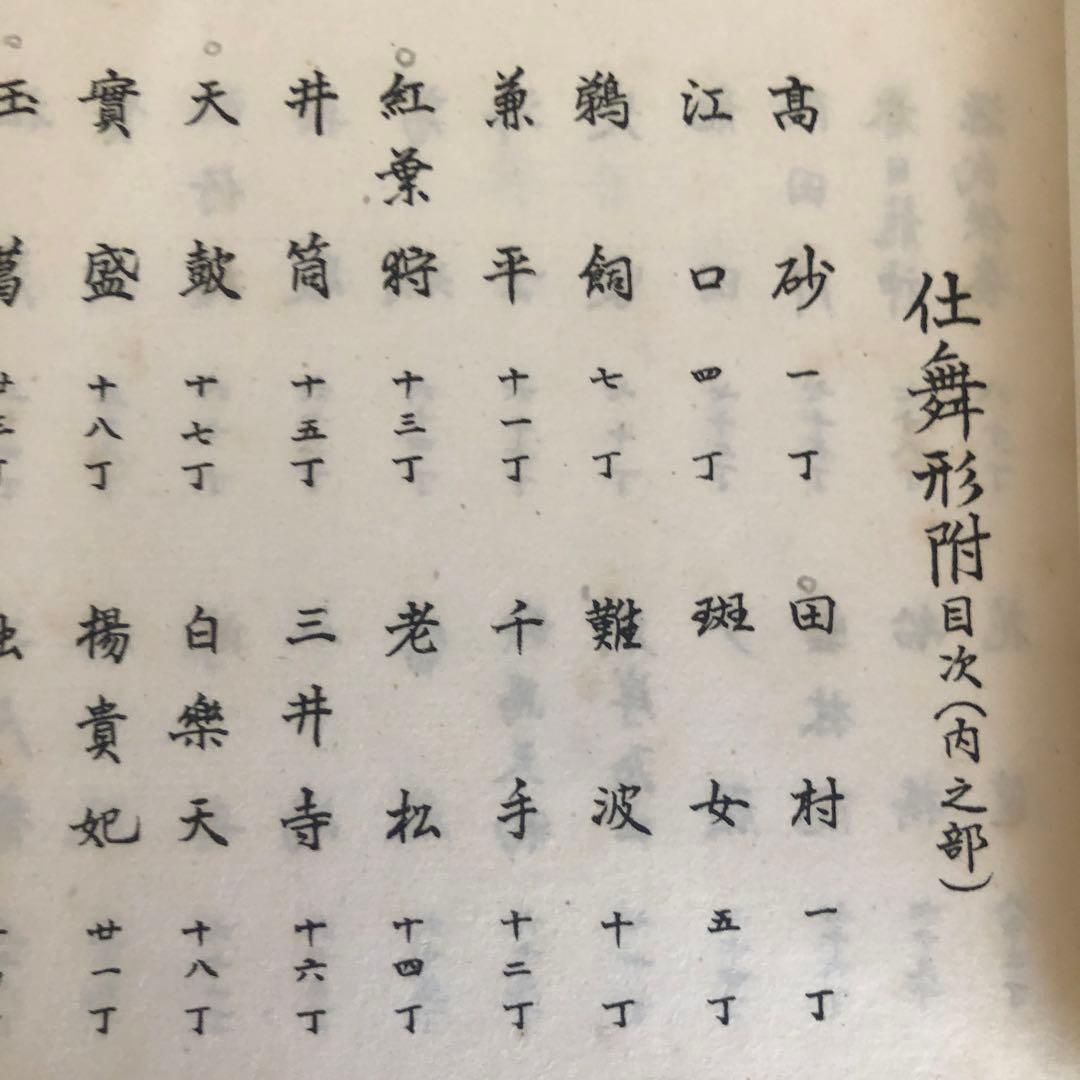 仕舞形附目次(内之部)
髙砂 一丁
田村 一丁
江口 四丁
斑女 五丁
鵜飼 七丁
難波 十丁
兼平 十一丁
千手 十二丁
紅葉狩 十三丁
老松 十四丁
井筒 十五丁
三井寺 十六丁
天鼓 十七丁
白樂天 十八丁
實盛 十八丁
楊貴妃 廿一丁
玉葛